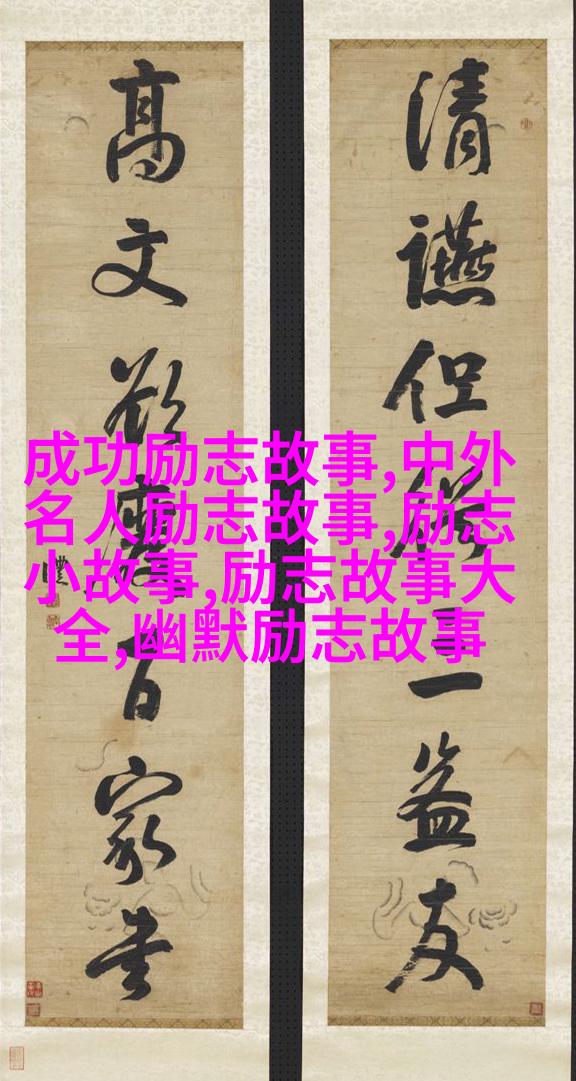 清讌但三益友
高文欲百家書
成功励志故事,中外
名人励志故事,励志
小故事,励志故事大
全,幽默励志故事